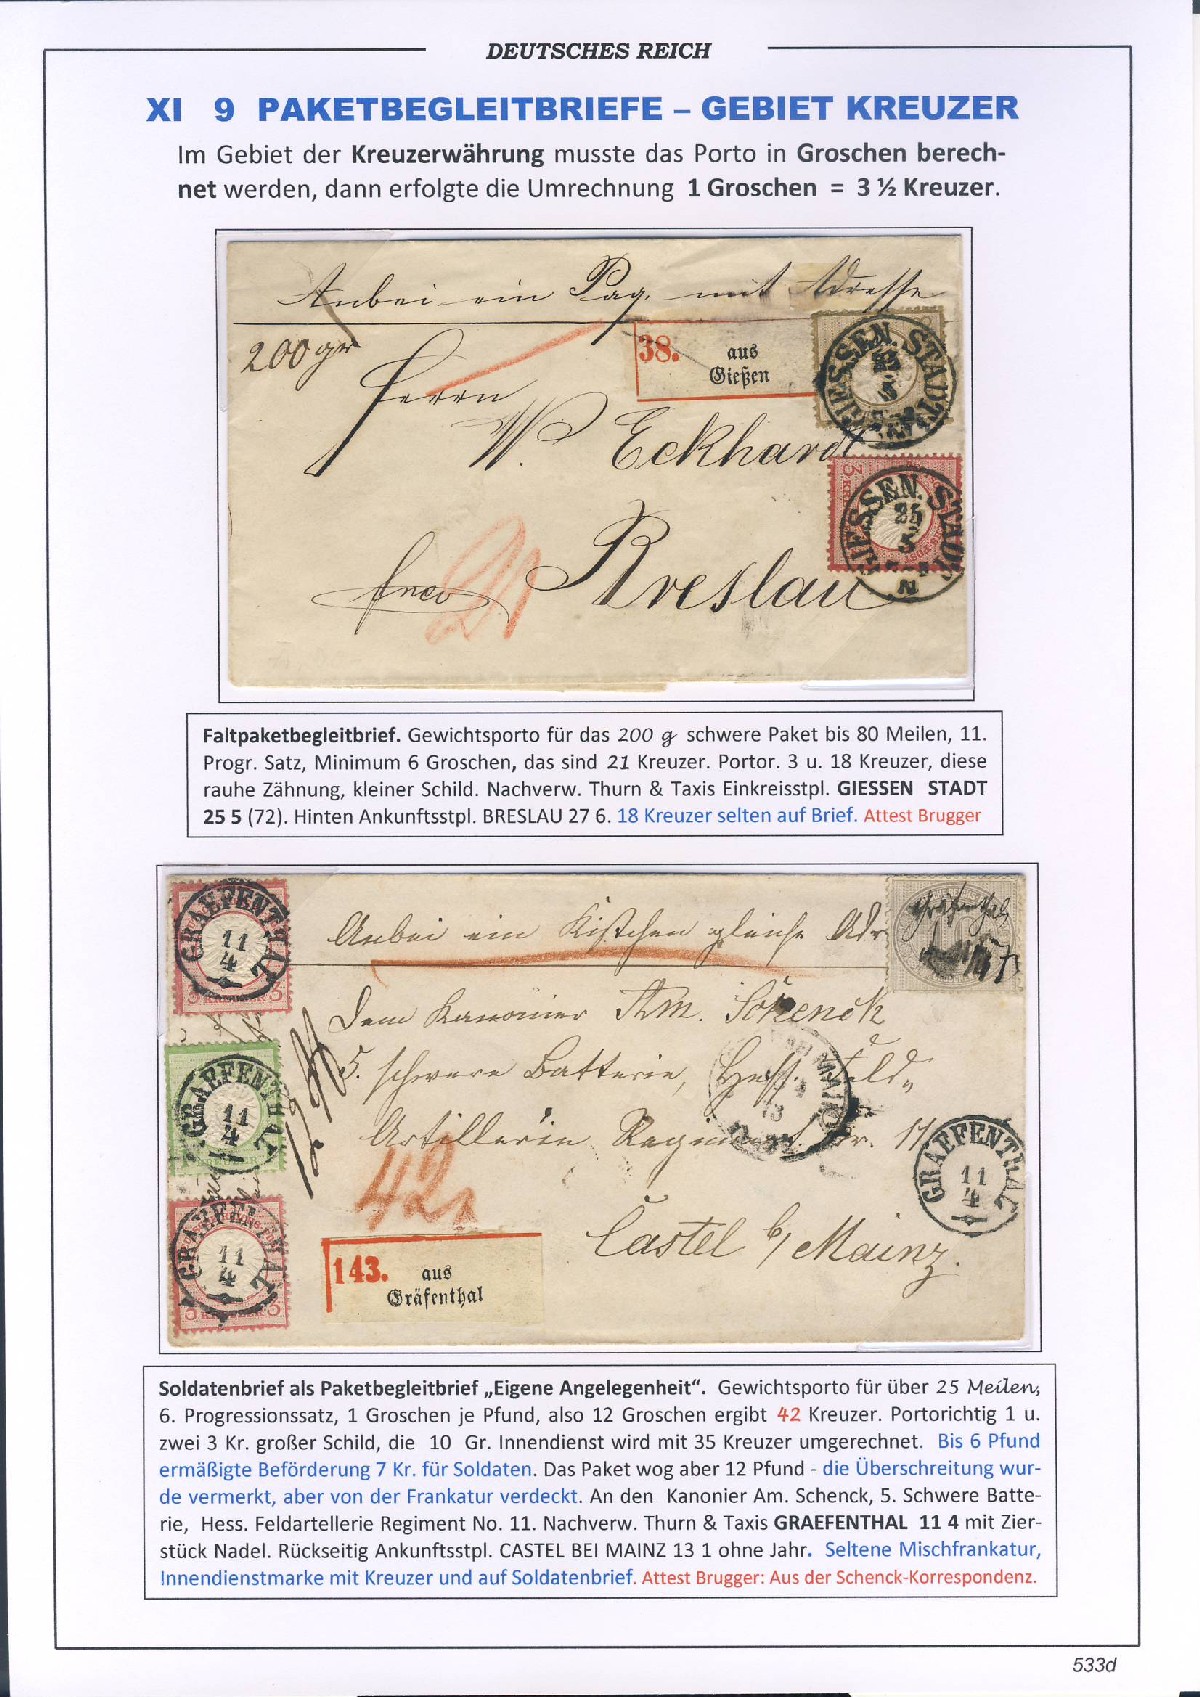 DEUTSCHES REICH
XI 9 PAKETBEGLEITBRIEFE – GEBIET KREUZER
Im Gebiet der Kreuzerwährung musste das Porto in Groschen berech-
net werden, dann erfolgte die Umrechnung 1 Groschen = 3 ½ Kreuzer.
Anbei ein Paq. mit Adresse
200 gr
38. aus
Gießen
Herrn
W. Eckhardt
Breslau
frco
21
GIESSEN. STADT
GIESSEN. STADT
25
5
Faltpaketbegleitbrief. Gewichtsporto für das 200 g schwere Paket bis 80 Meilen, 11.
Progr. Satz, Minimum 6 Groschen, das sind 21 Kreuzer. Portor. 3 u. 18 Kreuzer, diese
rauhe Zähnung, kleiner Schild. Nachverw. Thurn & Taxis Einkreisstpl. GIESSEN STADT
25 5 (72). Hinten Ankunftsstpl. BRESLAU 27 6. 18 Kreuzer selten auf Brief. Attest Brugger
GRAEFENTHAL
11
4
GRAEFENTHAL
11
4
GRAEFENTHAL
11
4
Anbei ein Kistchen gleiche Adr
Gräfenthal
Dem Kanonier Am. Schenck
5. schwere Batterie, Hess. Feld-
Artillerie Regiment Nr. 11
Castel b/ Mainz.
42
GRAEFENTHAL
11
4
143. aus
Gräfenthal
Soldatenbrief als Paketbegleitbrief „Eigene Angelegenheit“. Gewichtsporto für über 25 Meilen,
6. Progressionssatz, 1 Groschen je Pfund, also 12 Groschen ergibt 42 Kreuzer. Portorichtig 1 u.
zwei 3 Kr. großer Schild, die 10 Gr. Innendienst wird mit 35 Kreuzer umgerechnet. Bis 6 Pfund
ermäßigte Beförderung 7 Kr. für Soldaten. Das Paket wog aber 12 Pfund - die Überschreitung wur-
de vermerkt, aber von der Frankatur verdeckt. An den Kanonier Am. Schenck, 5. Schwere Batte-
rie, Hess. Feldartellerie Regiment No. 11. Nachverw. Thurn & Taxis GRAEFENTHAL 11 4 mit Zier-
stück Nadel. Rückseitig Ankunftsstpl. CASTEL BEI MAINZ 13 1 ohne Jahr. Seltene Mischfrankatur,
Innendienstmarke mit Kreuzer und auf Soldatenbrief. Attest Brugger: Aus der Schenck-Korrespondenz.
533d